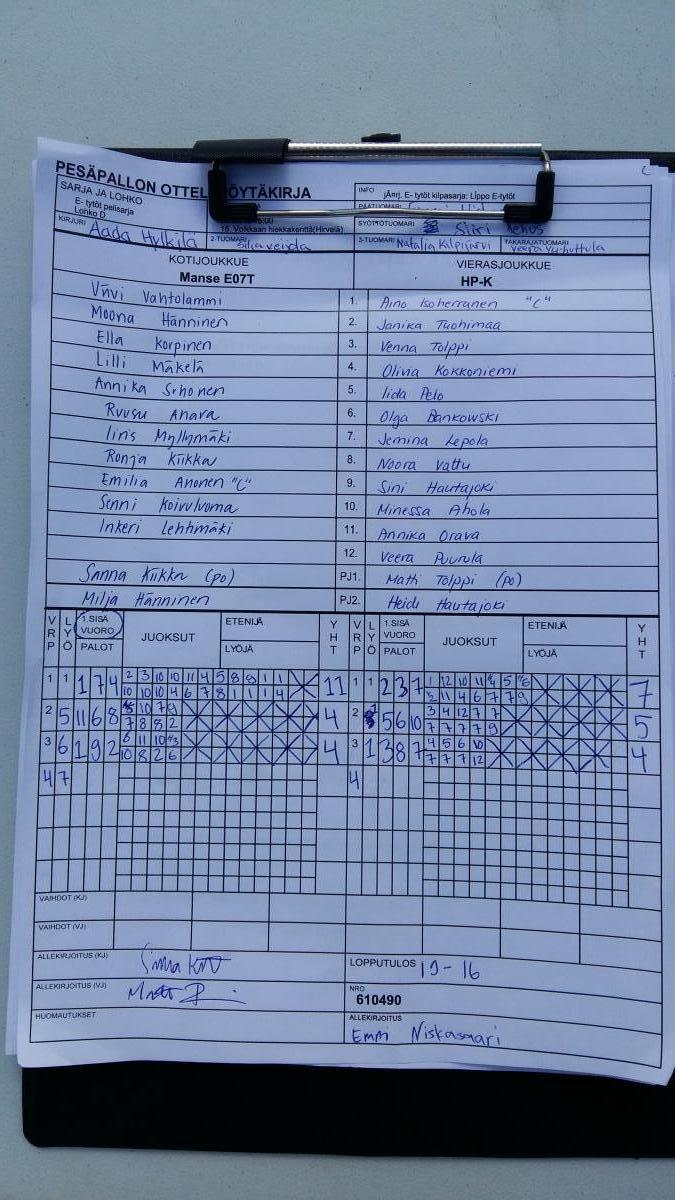 PESÄPALLON OTTEL ÖYTÄKIRJA
INFO jÄ¤rj. E- tytöt kilpasarja: Lippo E-tytöt
SARJA JA LOHKO
E- tytöt pelisarja
Lohko D
16, Volkkaan hiekkakenttä(Hirvelä)
SYÖTTÖTUOMARI Siiri
KIRJURI Aada Hylkilä
2-TUOMARI
3-TUOMARI Natalia Kilpijärvi
TAKARAJATUOMARI
KOTIJOUKKUE VIERASJOUKKUE
Manse E07T HP-K
Vahtolammi 1. Aino Isoherranen "C"
Moona Hänninen 2. Janika Tuohimaa
Ella Korpinen 3. Venna Tolppi
Lilli Mäkelä 4. Olivia Kokkoniemi
Annika 5. Iida Pelo
Ruusu 6. Olga Bankowski
Iiris Myllymäki 7. Jemina Lepola
Ronja Kiikka 8. Noora Vattu
Emilia Ahonen "C" 9. Sini Hautajoki
Senni Koivuluoma 10. Minessa Ahola
Inkeri Lehtimäki 11. Annika Orava
12. Veera Puurula
Sanna Kiikka (po) PJ1. Matti Tolppi (po)
Milja Hänninen PJ2. Heidi Hautajoki
VRP LYÖ 1.SISÄ VUORO PALOT JUOKSUT ETENIJÄ LYÖJÄ YHT VRP LYÖ 1.SISÄ VUORO PALOT JUOKSUT ETENIJÄ LYÖJÄ YHT
1 1 1 7 4 2 3 10 10 11 4 5 8 8 1 1 11 1 1 2 3 7 1 12 10 11 4 5 7
10 10 10 4 6 7 8 1 1 1 4 11 4 6 7 7 9
2 5 11 6 8 10 7 9 4 2 5 6 10 3 4 12 7 7 5
7 8 8 2 7 7 7 7 9
3 6 1 9 2 6 11 10 4 3 1 3 8 7 4 5 6 10 4
10 8 2 6 7 7 7 12
4 7 4
VAIHDOT (KJ)
VAIHDOT (VJ)
ALLEKIRJOITUS (KJ) LOPPUTULOS 19-16
ALLEKIRJOITUS (VJ) NRO
610490
HUOMAUTUKSET ALLEKIRJOITUS
Emmi Niskasaari